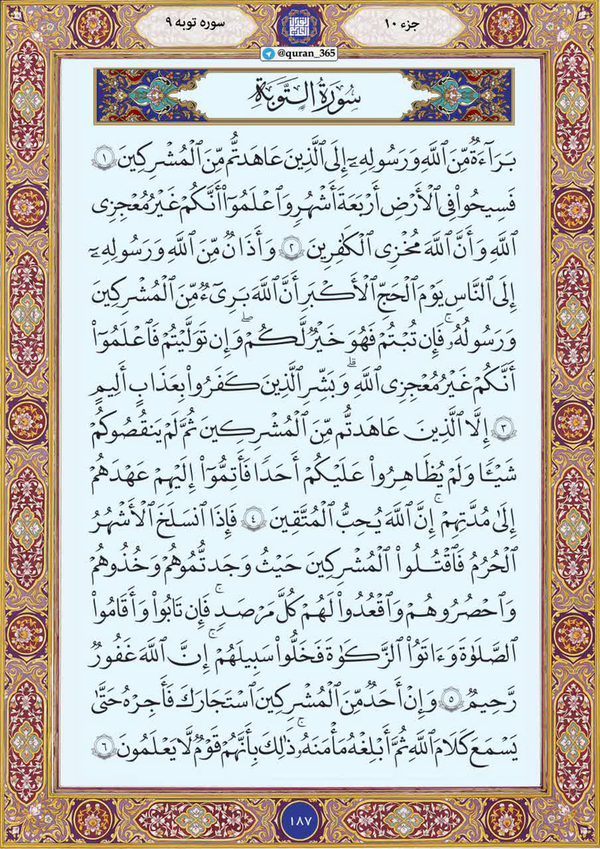 جزء ۱۰
سوره توبه ۹
@quran_365
سُورَةُ التَّوْبَةِ
بَرَآءَةٌ مِّنَ ٱللَّهِ وَرَسُولِهِۦٓ إِلَى ٱلَّذِينَ عَاهَدتُّم مِّنَ ٱلْمُشْرِكِينَ ۝١
فَسِيحُوا۟ فِى ٱلْأَرْضِ أَرْبَعَةَ أَشْهُرٍ وَٱعْلَمُوٓا۟ أَنَّكُمْ غَيْرُ مُعْجِزِى
ٱللَّهِ وَأَنَّ ٱللَّهَ مُخْزِى ٱلْكَٰفِرِينَ ۝٢ وَأَذَٰنٌ مِّنَ ٱللَّهِ وَرَسُولِهِۦٓ
إِلَى ٱلنَّاسِ يَوْمَ ٱلْحَجِّ ٱلْأَكْبَرِ أَنَّ ٱللَّهَ بَرِىٓءٌ مِّنَ ٱلْمُشْرِكِينَ
وَرَسُولُهُۥ ۚ فَإِن تُبْتُمْ فَهُوَ خَيْرٌ لَّكُمْ ۖ وَإِن تَوَلَّيْتُمْ فَٱعْلَمُوٓا۟
أَنَّكُمْ غَيْرُ مُعْجِزِى ٱللَّهِ ۗ وَبَشِّرِ ٱلَّذِينَ كَفَرُوا۟ بِعَذَابٍ أَلِيمٍ
۝٣ إِلَّا ٱلَّذِينَ عَاهَدتُّم مِّنَ ٱلْمُشْرِكِينَ ثُمَّ لَمْ يَنقُصُوكُمْ
شَيْـًٔا وَلَمْ يُظَاهِرُوا۟ عَلَيْكُمْ أَحَدًا فَأَتِمُّوٓا۟ إِلَيْهِمْ عَهْدَهُمْ
إِلَىٰ مُدَّتِهِمْ ۚ إِنَّ ٱللَّهَ يُحِبُّ ٱلْمُتَّقِينَ ۝٤ فَإِذَا ٱنسَلَخَ ٱلْأَشْهُرُ
ٱلْحُرُمُ فَٱقْتُلُوا۟ ٱلْمُشْرِكِينَ حَيْثُ وَجَدتُّمُوهُمْ وَخُذُوهُمْ
وَٱحْصُرُوهُمْ وَٱقْعُدُوا۟ لَهُمْ كُلَّ مَرْصَدٍ ۚ فَإِن تَابُوا۟ وَأَقَامُوا۟
ٱلصَّلَوٰةَ وَءَاتَوُا۟ ٱلزَّكَوٰةَ فَخَلُّوا۟ سَبِيلَهُمْ ۚ إِنَّ ٱللَّهَ غَفُورٌ
رَّحِيمٌ ۝٥ وَإِنْ أَحَدٌ مِّنَ ٱلْمُشْرِكِينَ ٱسْتَجَارَكَ فَأَجِرْهُ حَتَّىٰ
يَسْمَعَ كَلَٰمَ ٱللَّهِ ثُمَّ أَبْلِغْهُ مَأْمَنَهُۥ ۚ ذَٰلِكَ بِأَنَّهُمْ قَوْمٌ لَّا يَعْلَمُونَ ۝٦
١٨٧